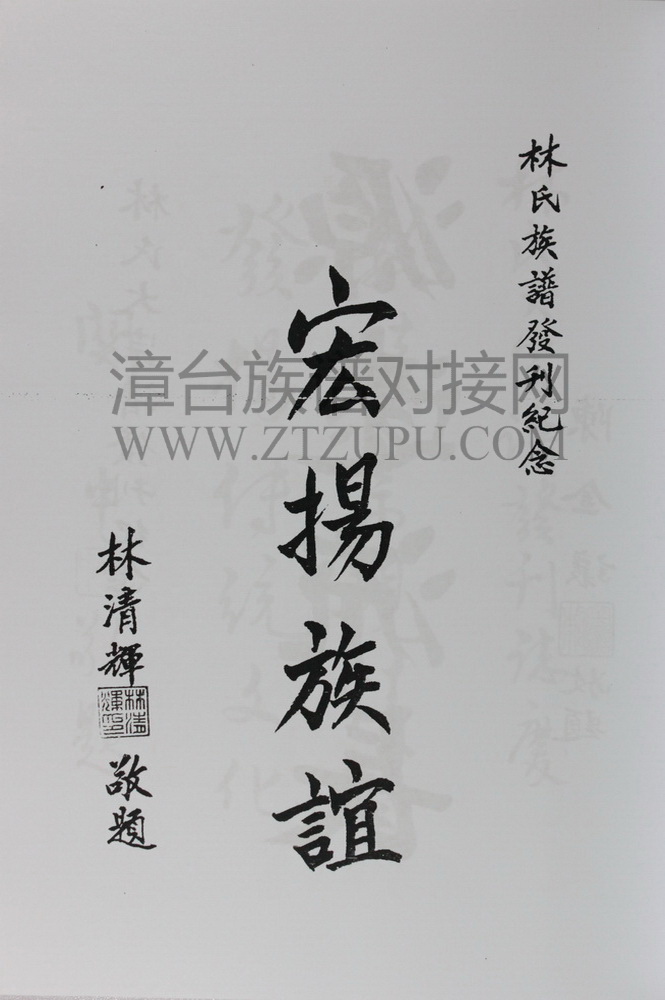 林氏族譜發刊紀念
宏揚族誼
林清輝
林清輝印
敬題
漳台族谱对接网
WWW.ZTZUPU.COM